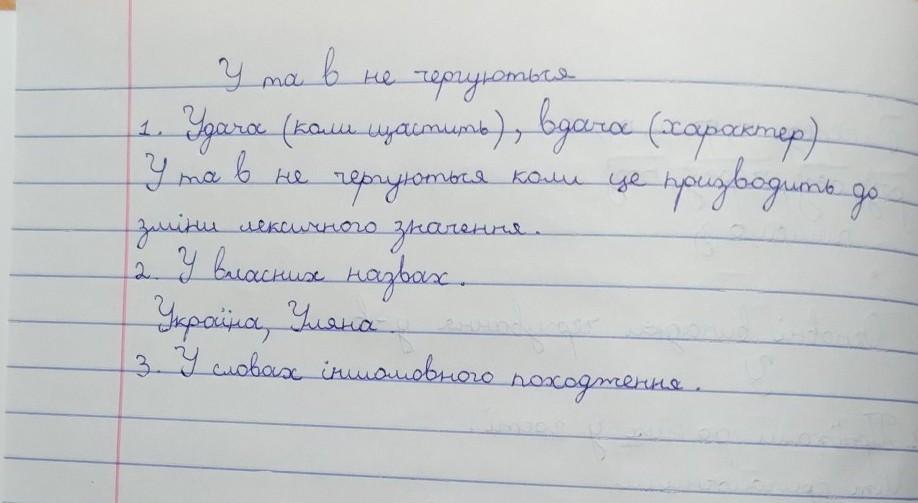 У та в не чергуються
1. Удача (коли щастить), вдача (характер)
У та в не чергуються коли це призводить до
зміни лексичного значення.
2. У власних назвах.
Україна, Уляна.
3. У словах іншомовного походження.